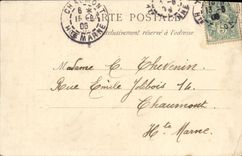 CARTE POSTALE
exclusivement réservé à l'adresse
CHAUMONT
15
05
HTE MARNE
Madame C. Chevenin
Rue Emile Jolibois 16
Chaumont
Hte Marne